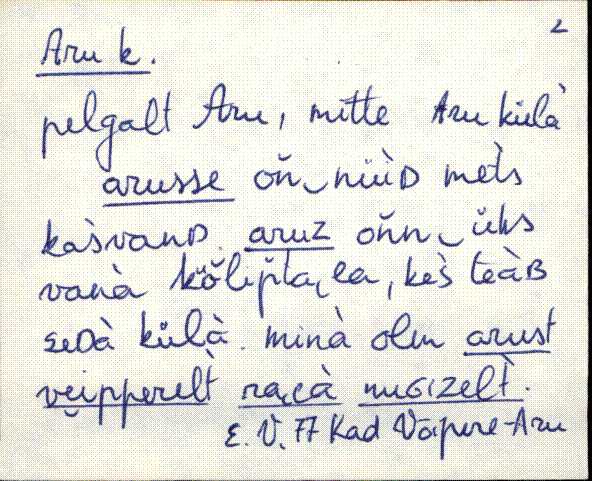 2
Aru k.
pelgalt Aru, mitte Aru külà
arusse oǹ‿nüüD metś
kàsvanD. aruz oǹn‿ üks
vanà kŏ̀lipìta,ea, kes teàB
seDà külà. minà olen arust
veipperelt raea nuGizelt.
E. V. 77 Kad Vaipere-Aru